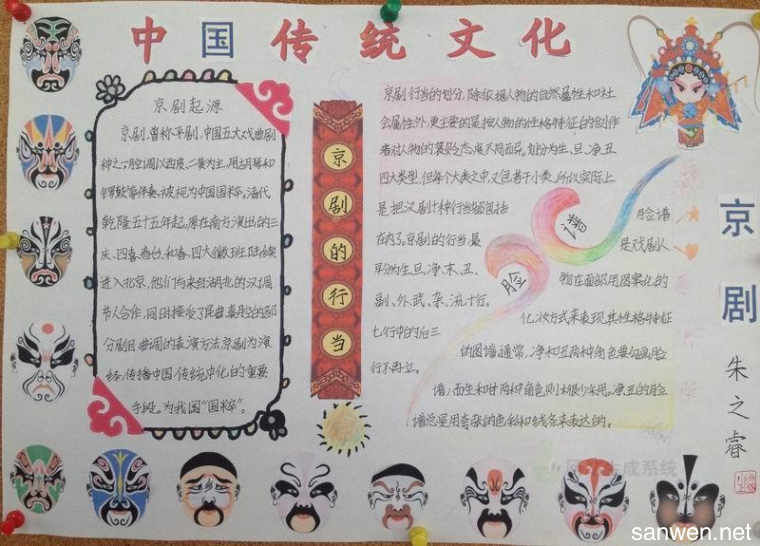 中国传统文化
京剧起源
京剧,曾称平剧,中国五大戏曲剧
种之一,腔调以西皮、二黄为主,用胡琴和
锣鼓等伴奏,被视为中国国粹,清代
乾隆五十五年起,原在南方演出的三
庆、四喜、春台、和春,四大徽班陆续
进入北京,他们与来自湖北的汉调
节人合作,同时接受了昆曲、秦腔的部
分剧目、曲调和表演方法
传播中国传统文化的重要
手段。为我国“国粹”。
京剧的行当
京剧行当的划分,除依据人物的自然属性和社
会属性外,更主要的是按人物的性格特征和创作
者对人物的褒贬态度不同而异,划分为生、旦、净、丑
四大类型,但每个大类之中又包着干小类,所以实际上
是把汉剧十种行当
在内了。京剧的行当,最
早分为生、旦、净、末、丑、
副、外、武、杂、流十行。
七行中的后三
行不再立。
脸谱
脸谱
是戏剧人
物在面部用图案化的
化妆方式来表现其性格特征
的图谱,通常,净和丑两种角色要勾画脸
谱,而生和旦两种角色则很少采用。净、丑的脸
谱总是用夸张的色彩和线条来表达的。
京剧
朱之睿
成系统
sanwen.net